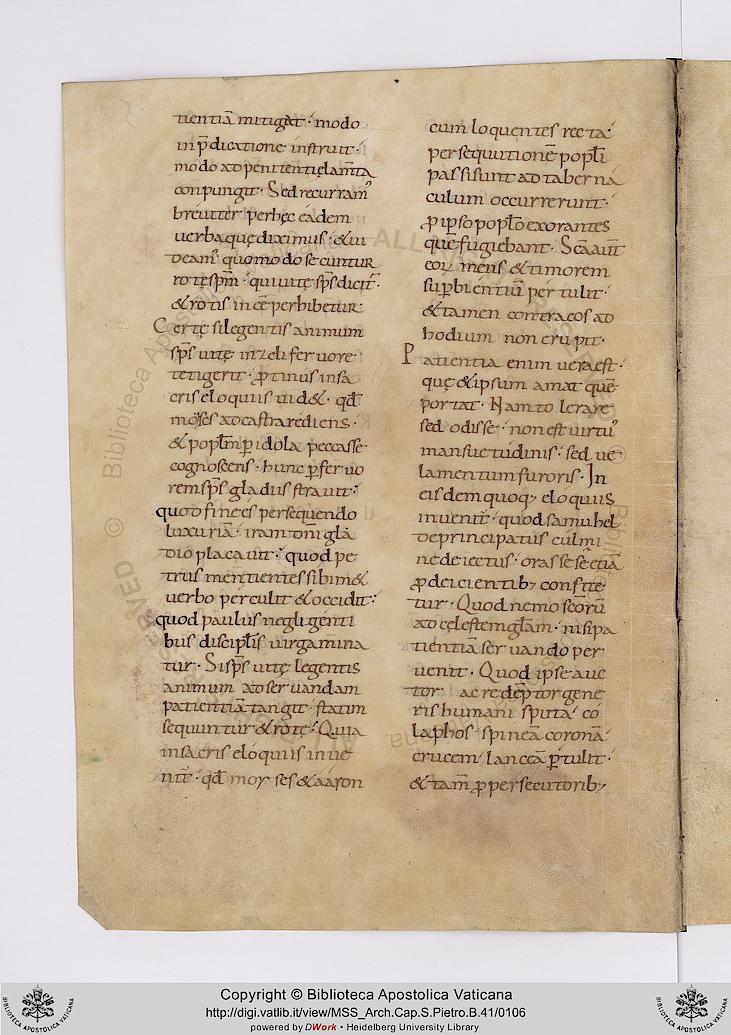 tientiā mitigat · modo
in p̄dicatione instruit ·
modo ad penitentię lam̄ta
conpungit · Sed recurram᾽
breuiter perhęc eadem
uerba quę diximus · & ui
deam᾽ quomodo secuntur
rote sp̄m · qui uitę sp̄s dicit᾽ ·
& rotis inēē perhibetur ·
Certę si legentis animum
sp̄s uitę in zeli feruore
tetigerit · p̄tinus in sa
cris eloquiis uid& · qđ
moyses ad castra rediens ·
& popl̄m p idola peccasse
cognoscens · hunc p feruo
rem sp̄s gladiis strauit ·
quod finees persequendo
luxuriā · iram dn̄i gla
dio placauit · quod pe
trus mentientes sibim&
uerbo perculit & occidit :
quod paulus negligenti
bus discipl̄is uirga mina
tur · Si sp̄s uitę legentis
animum ad seruandam
patientiā tangit · statim
sequuntur & rotę · Quia
in sacris eloquiis inue
nit̄ · qđ moyses & aaron
cum loquentes recta ·
persequutionē popl̄i
passi sunt ad taberna
culum occurrerunt ·
p ipso popl̄o exorantes
quē fugiebant · Sc̄a aut̄
eoꝝ mens & timorem
sup̄bientiū pertulit ·
& tamen contra eos ad
hodium non erupit ·
Patientia enim uera est ·
quę & ipsum amat quē
portat · Nam tolerare
sed odisse · non est uirtu᾽
mansuetudinis · sed ue
lamentum furoris · In
eisdem quoq; eloquiis
inuenit̄ · quod samuhel
de principatus culmi
ne deiectus · orasse se etiā
p deicientib; confite
tur · Quod nemo sc̄orū
ad cęlestem gl̄am · nisi pa
tientiā seruando per
uenit · Quod ipse auc
tor ac redēptor gene
ris humani sputa · co
laphos · spineā coronā ·
crucem · lanceā ptulit ·
& tam̄ p persecutorib;
Copyright © Biblioteca Apostolica Vaticana
http://digi.vatlib.it/view/MSS_Arch.Cap.S.Pietro.B.41/0106
powered by DWork • Heidelberg University Library